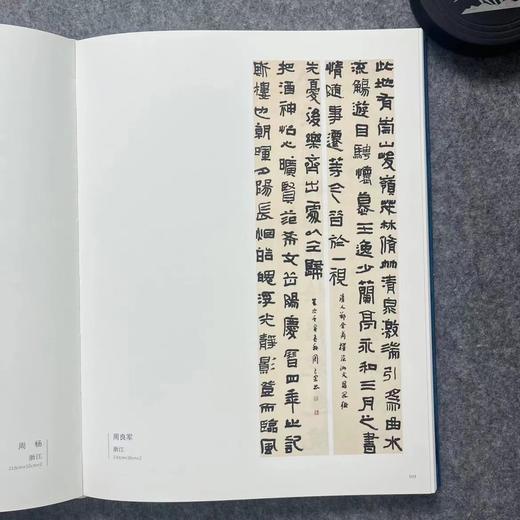 此地有崇山峻嶺茂林脩竹清泉激湍引爲曲水
流觴遊目騁懷慕王逸少蘭亭永和三月之書
情隨事遷等今昔於一視
斯樓也朝暉夕陽長烟皓魄浮光靜影登而臨風
把酒神怡心曠賢范希文岳陽慶曆四年此記
先憂後樂齊出處以仝歸
周良军
浙江
周 杨
浙江